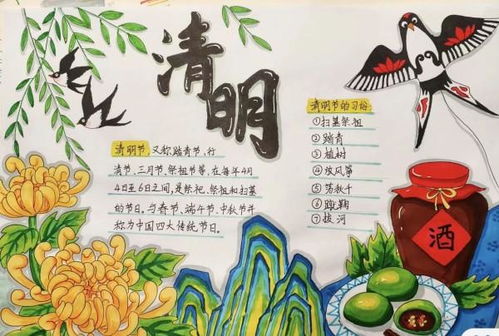 清明
清明节,又称踏青节、行
清节、三月节、祭祖节等,在每年4月
4日至6日之间,是祭祀、祭祖和扫墓
的节日。与春节、端午节、中秋节并
称为中国四大传统节日。
清明节的习俗
①扫墓祭祖
②踏青
③植树
④放风筝
⑤荡秋千
⑥蹴鞠
⑦拔河
酒